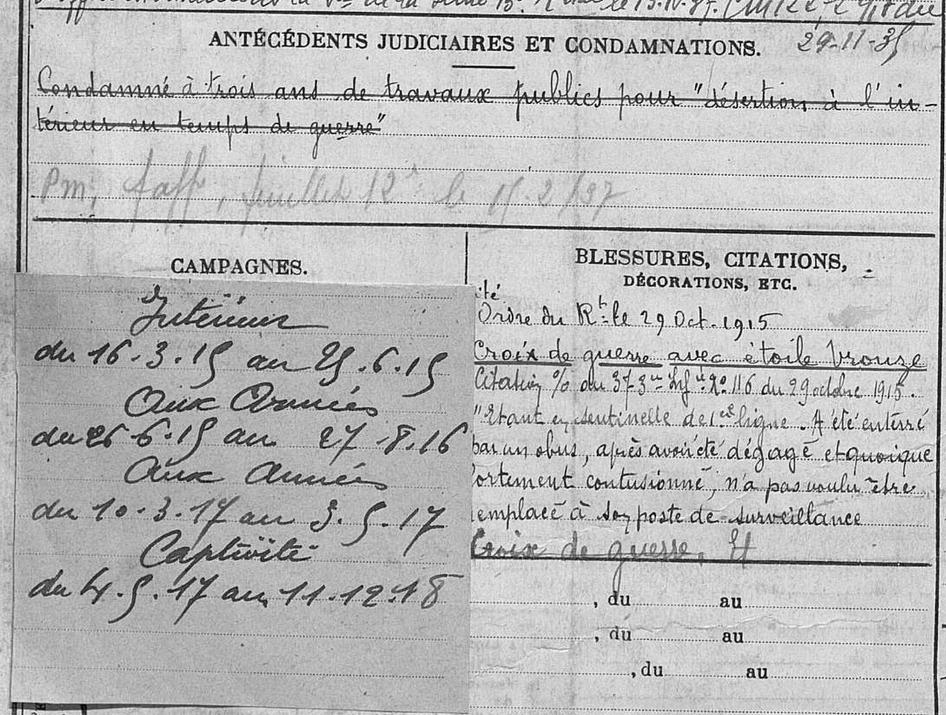 29-11-35
ANTÉCÉDENTS JUDICIAIRES ET CONDAMNATIONS.
Condamné à trois ans de travaux publics pour "désertion à l'in-
térieur en temps de guerre"
le 15.2/37
CAMPAGNES.
Intérieur
du 16.3.15 au 25.6.15
Aux Armées
du 26 6.15 au 27.8.16
Aux Armées
du 10.3.17 au 3.5.17
Captivité
du 4.5.17 au 11.12.18
BLESSURES, CITATIONS,
DÉCORATIONS, ETC.
ité
Ordre du Rt le 29 Oct. 1915
Croix de guerre avec étoile bronze
Citation % du 373e Inf. No 116 du 29 octobre 1915.
"Etant en sentinelle de 1ere ligne. A été enterré
par un obus, après avoir été dégagé et quoique
fortement contusionné, n'a pas voulu être
emplacé à son poste de surveillance
Croix de guerre,
, du au
, du au
, du au
au